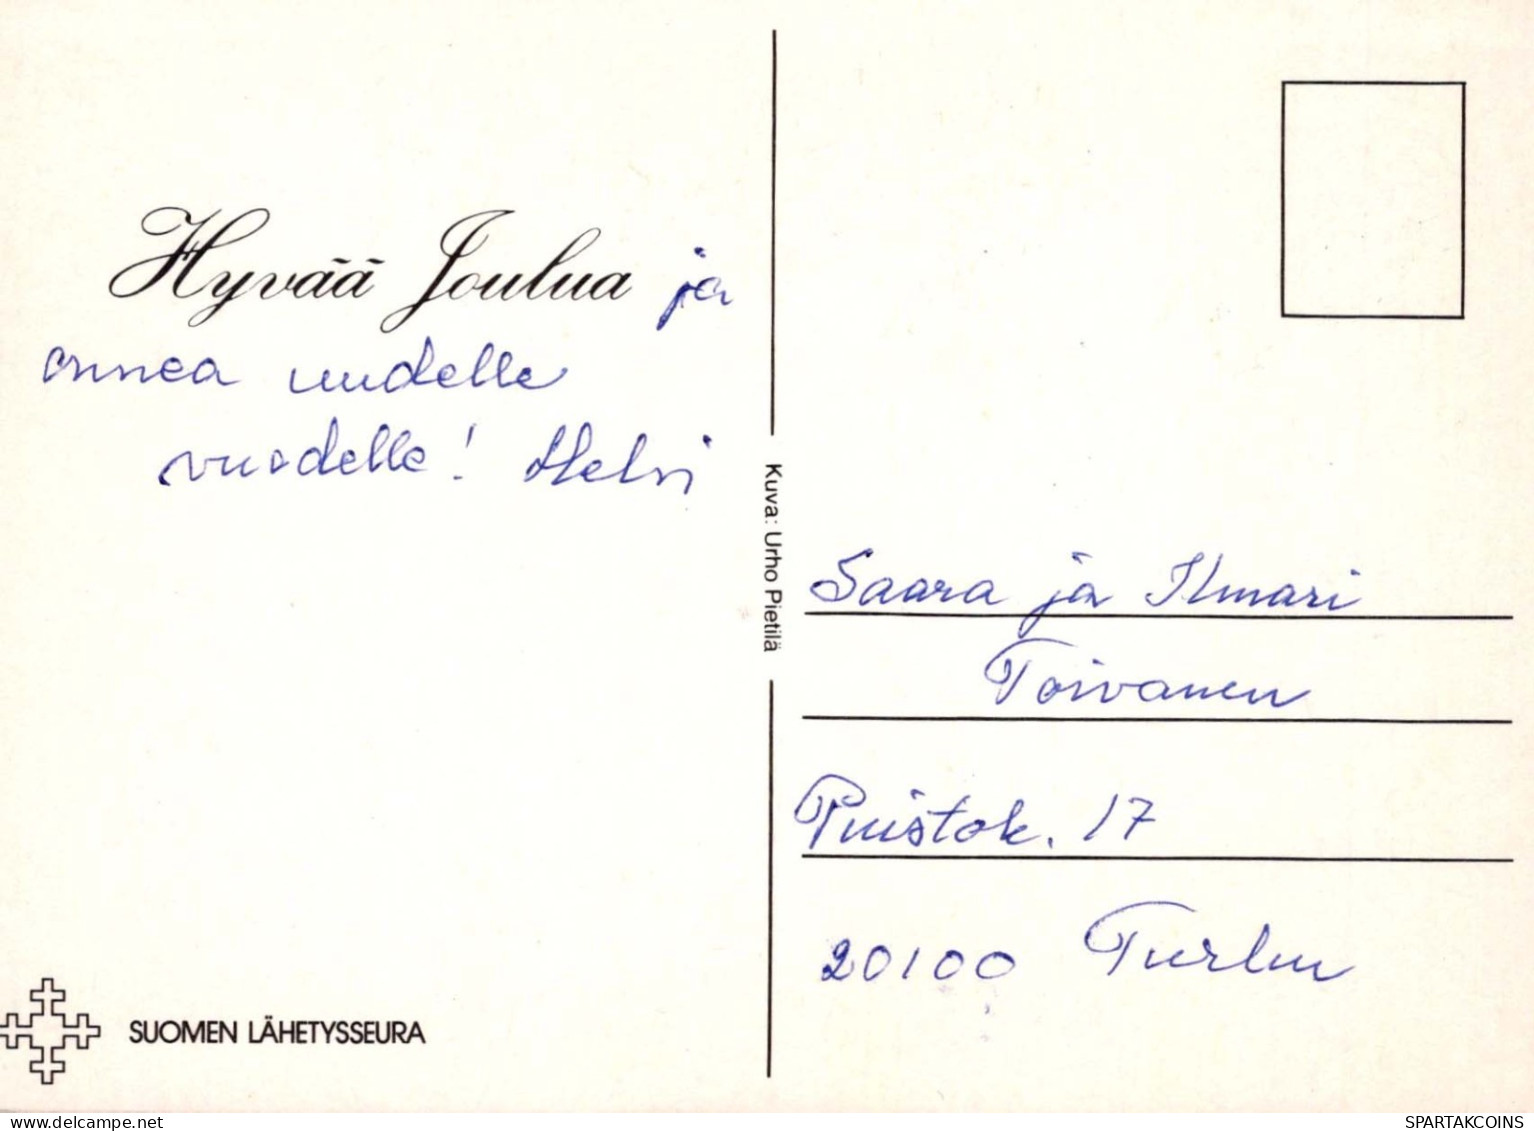 Hyvää Joulua ja
onnea uudelle
vuodelle! Helvi
Kuva: Urho Pietilä
Saara ja Ilmari
Toivanen
Puistok. 17
20100 Turku
SUOMEN LÄHETYSSEURA
delcampe.net
SPARTAKCOINS